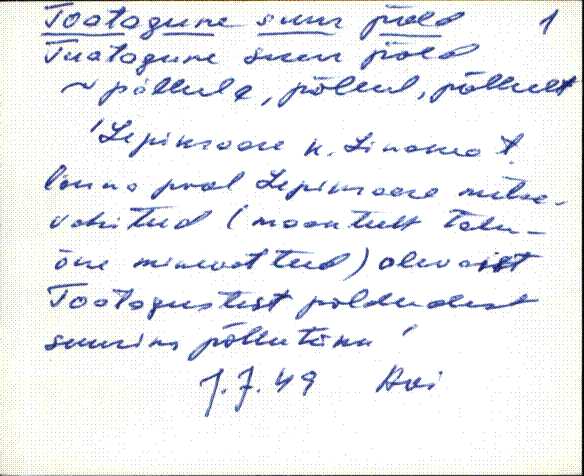 Tootagune suur põld 1
Tuatagune suur põld
~ põllule, põllul, põllult
'Lepiksaare k. Linamäe t.
lõuna pool Lepiksaare metsa-
vahitud (maantelt talu-
õue minevat teed) olevaist
Tootagustest põldudest
suurim põllutükk'
1.7.49